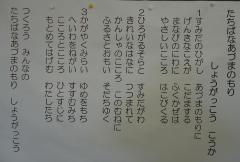 たちばなあづまのもり
しょうがっこう こうか
1 すみだのひがし あづまのもりに
げんきなこえが こだまする
まなびのにわに ふくかぜは
やさしいこころ はこびくる
2 ひろがるそらと すみだがわ
きれいなはなに つつまれて
かんしゃのこころ このむねに
ふるさとおもい そだちゆく
3 かがやくみらい ゆめをもち
へいわをねがい すすむみち
こころとこころ ひとすじに
もとめてはげむ わたしたち
つくろう みんなの
たちばなあづまのもり しょうがっこう